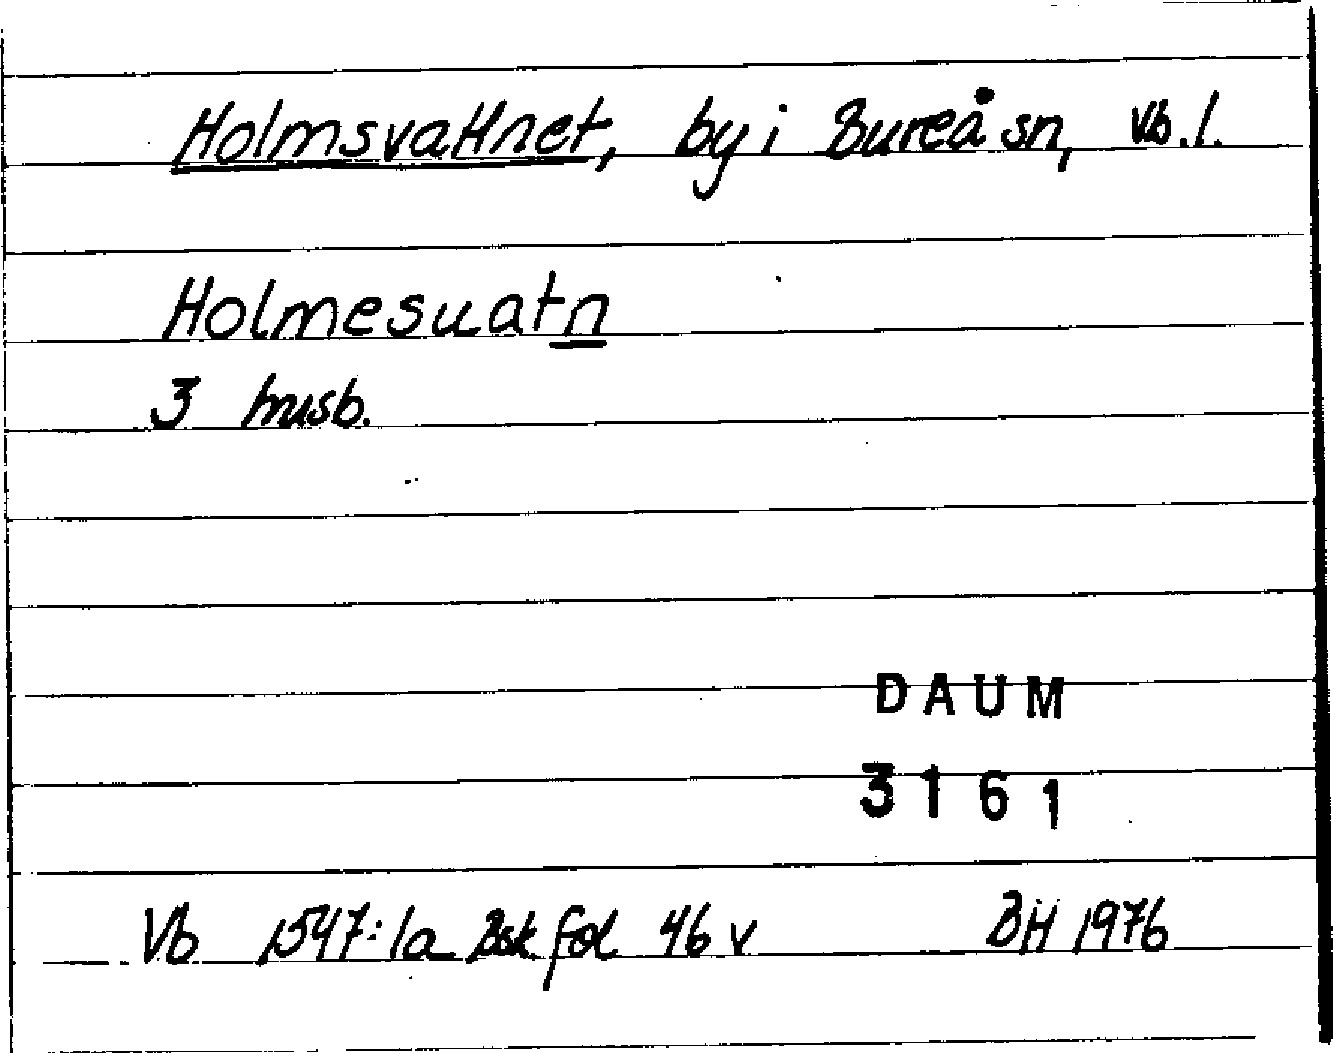 Holmsvattnet, by i Bureå sn, Vb. l.
Holmesuatn
3 husb.
DAUM
3161
Vb 1547:1a Bsk fol 46 v BH 1976